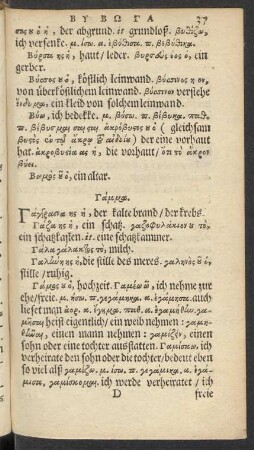 Β Υ Β Ω Γ Α 37
der abgrund. it grundloß. βυθίζω,
ich versenke. μ. ίσω. π. βεβύθικα.
Βύρσα ης ἡ, haut/ leder. ein
gerber.
Βύσσος ου ὁ, köstlich leinwand. βύσσινος η ον,
von überköstlichem leinwand. βύσσινον versteche
ἔνδυμα, ein kleid von solchem leinwand.
Βύω, ich bedekke. μ. βύσω. π. βέβυκα.
π. βέβυσμαι (gleichsam
der eine vorhaut
hat. ἀκροβυσία ας ἡ, die vorhaut/
Βωμὸς οῦ ὁ, ein altar.
Γάμμα.
Γάγγραινα ης ἡ, der kalte brand/ der krebs.
Γάζα ης ἡ, ein schatz. γαζοφυλάκιον ου τὸ,
ein schatzkasten. it. eine schatzkammer.
Γάλα γάλακτος τὸ, milch.
Γαλήνη ης ἡ, die stille des meers. γαληνὸς οῦ ὁ,
stille/ ruhig.
Γάμος ου ὁ, hochzeit. Γαμέω ῶ, ich nehme zur
ehe/ freie. μ. ήσω. π. γεγάμηκα. ἐγάμησα. auch
lieset man ἐγάμηθην.
heist eigentlich/ ein weib nehmen:
einen mann nehmen: γαμίζειν, einen
sohn oder eine tochter ausstatten. Γαμίσκω, ich
verheirate den sohn oder die tochter/ bedeut eben
so viel alß γαμίζω. μ. ίσω. π. γεγάμικα.
γαμίσκομαι. ich werde verheiratet/ ich
D freie